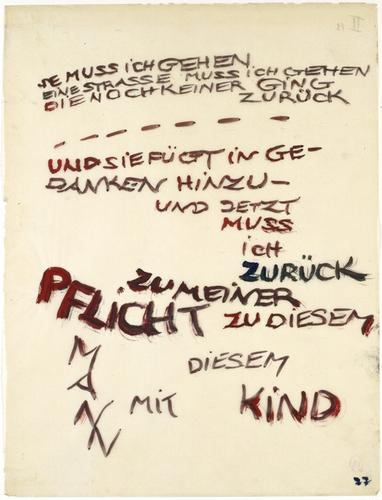 NE MUSS ICH GEHEN
EINE STRASSE MUSS ICH GEHEN
DIE NOCH KEINER GING
ZURÜCK
UND SIE FÜGT IN GE-
DANKEN HINZU-
UND JETZT
MUSS
ICH
ZURÜCK
ZU MEINER
PFLICHT ZU DIESEM
MANN MIT DIESEM
KIND
77